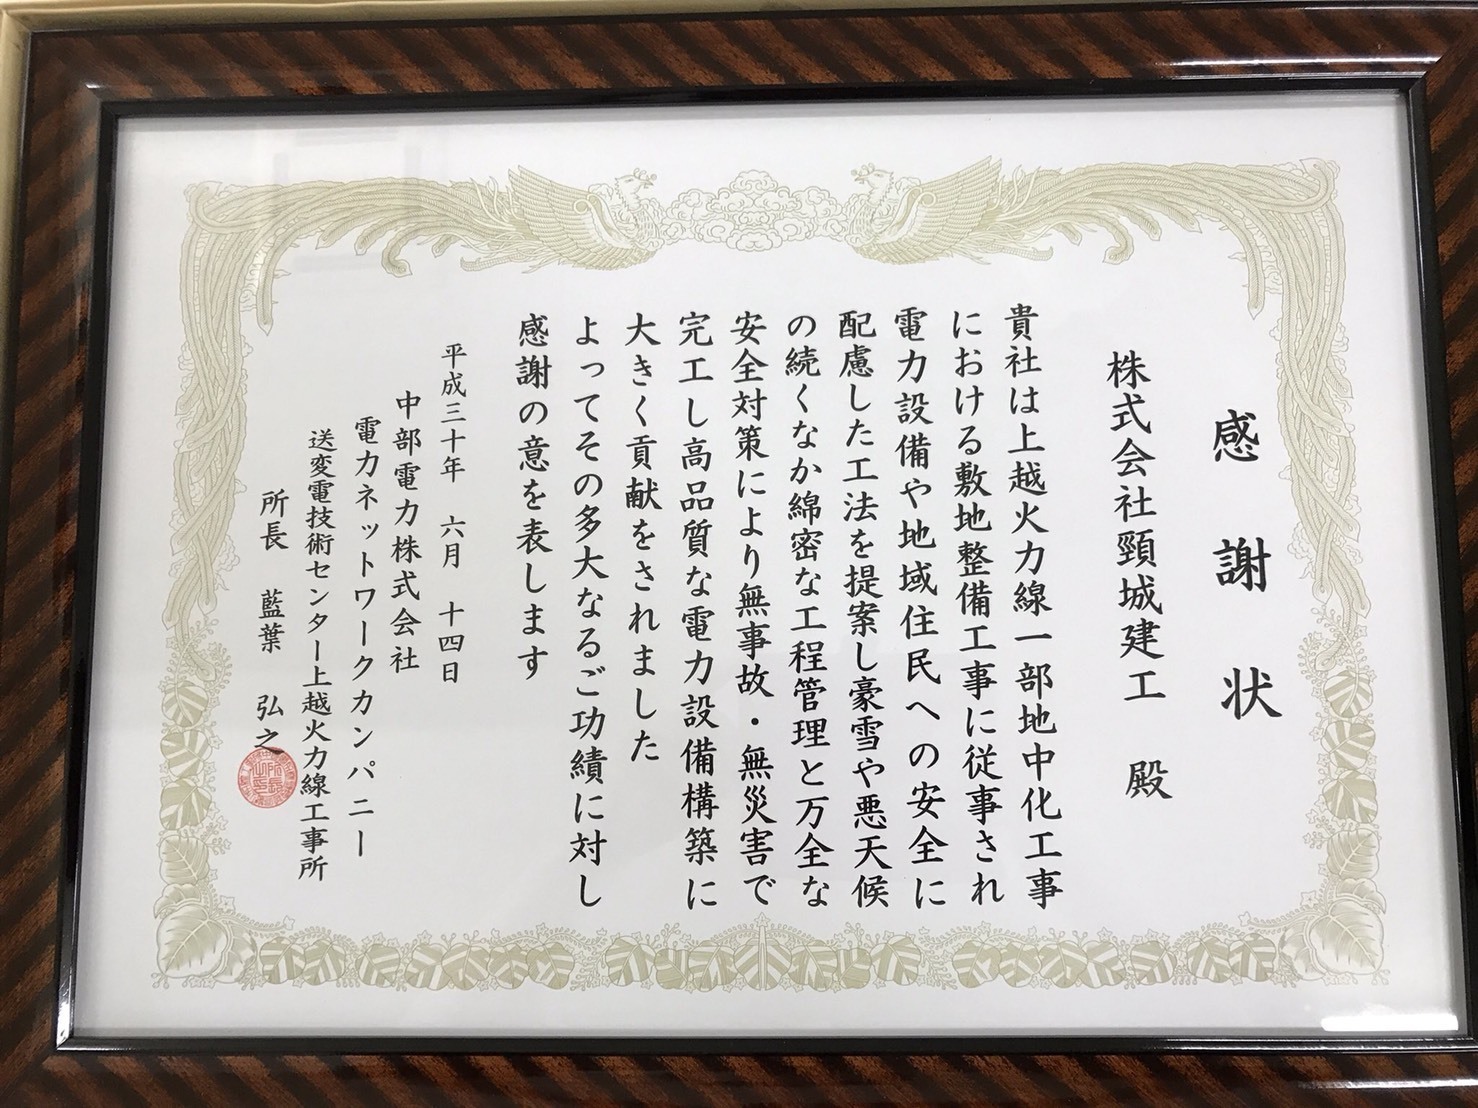 感謝状
株式会社頸城建工 殿
貴社は上越火力線一部地中化工事
における敷地整備工事に従事され
電力設備や地域住民への安全に
配慮した工法を提案し豪雪や悪天候
の続くなか綿密な工程管理と万全な
安全対策により無事故・無災害で
完工し高品質な電力設備構築に
大きく貢献をされました
よってその多大なるご功績に対し
感謝の意を表します
平成三十年 六月 十四日
中部電力株式会社
電力ネットワークカンパニー
送変電技術センター上越火力線工事所
所長 藍葉 弘之